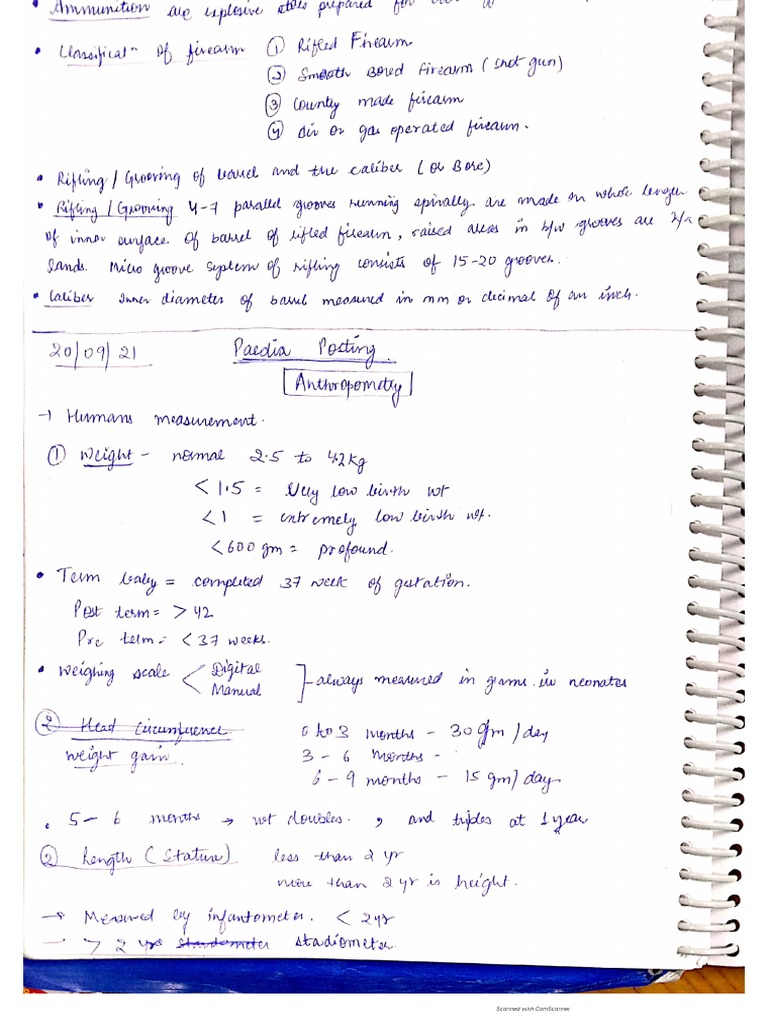 Ammunition are explosive prepared for
• Classificatn of firearm ① Rifled Firearm
② Smooth Bored Firearm (shot gun)
③ County made firearm
④ Air or gas operated firearm.
• Rifling / Grooving of barrel and the caliber (or Bore)
• Rifling / Grooving 4-7 parallel grooves running spirally are made in whole length
of inner surface of barrel of rifled firearm, raised areas in b/w grooves are
lands. Micro groove system of rifling consists of 15-20 grooves.
• Caliber Inner diameter of barrel measured in mm or decimal of an inch.
20/09/21 Paedia Posting.
Anthropometry
→ Humans measurement.
① Weight - normal 2.5 to 4.2kg
< 1.5 = Very low birth wt
< 1 = extremely low birth wt.
< 600 gm = profound.
• Term baby = completed 37 week of gestation.
Post term = > 42
Pre term = < 37 weeks.
• Weighing scale < Digital
Manual ] - always measured in grams in neonates
② Head Circumference 0 to 3 months - 30 gm/day
weight gain. 3 - 6 months -
6 - 9 months - 15 gm/day
• 5 - 6 months → wt doubles. , and triples at 1 year
② Length (Stature) less than 2 yr
more than 2 yr is height.
→ Measured by infantometer. < 2yr
→ > 2 yr stadiometer
Scanned with CamScanner